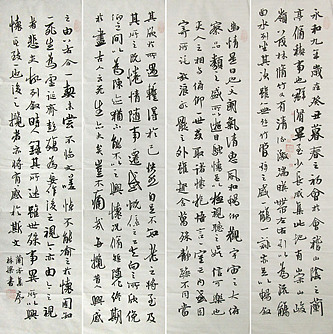 永和九年歲在癸丑暮春之初會于會稽山陰之蘭
亭脩禊事也群賢畢至少長咸集此地有崇山峻
領茂林脩竹又有清流激湍映帶左右引以為流觴
曲水列坐其次雖無絲竹管弦之盛一觴一詠亦足以暢敘
幽情是日也天朗氣清惠風和暢仰觀宇宙之大俯
察品類之盛所以遊目騁懷足以極視聽之娛信可樂也
夫人之相與俯仰一世或取諸懷抱悟言一室之內或因
寄所託放浪形骸之外雖趣舍萬殊靜躁不同當
其欣於所遇暫得於己快然自足不知老之將至及
其所之既倦情隨事遷感慨係之矣向之所欣俛
仰之間以為陳迹猶不能不以之興懷況脩短隨化終期
於盡古人云死生亦大矣豈不痛哉每攬昔人興感
之由若合一契未嘗不臨文嗟悼不能喻之於懷固知
一死生為虛誕齊彭殤為妄作後之視今亦由今之視
昔悲夫故列敘時人錄其所述雖世殊事異所以興
懷其致一也後之攬者亦將有感於斯文
蘭亭集序